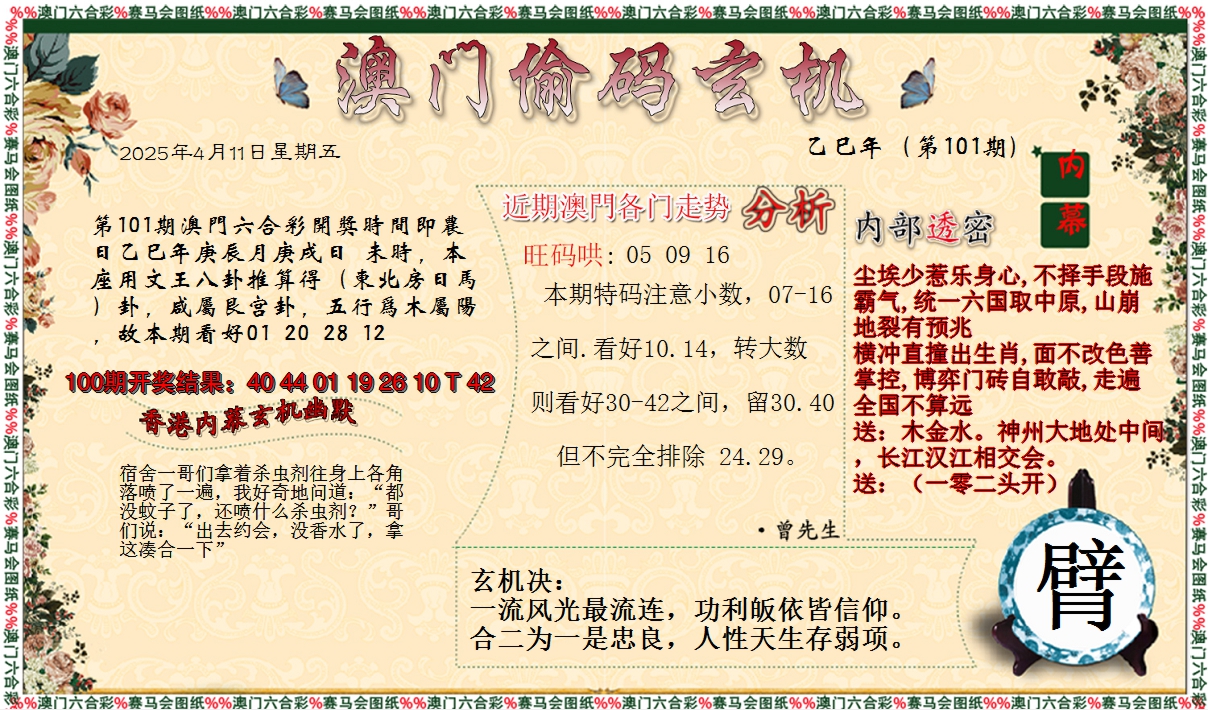 %%澳门六合彩%赛马会图纸%%澳门六合彩%赛马会图纸%%澳门六合彩%赛马会图纸%%澳门六合彩%赛马会图纸%%澳门六合彩%赛马会图纸%%澳门六合彩%赛马会图纸%%
澳门偷码玄机
2025年4月11日星期五
乙巳年（第101期）
内
幕
第101期澳門六合彩開獎時間即農
日乙巳年庚辰月庚戌日 未時，本
座用文王八卦推算得（東北房日馬
）卦，咸屬艮宫卦，五行爲木屬陽
，故本期看好01 20 28 12
100期开奖结果：40 44 01 19 26 10 T 42
香港内幕玄机幽默
宿舍一哥们拿着杀虫剂往身上各角
落喷了一遍，我好奇地问道：“都
没蚊子了，还喷什么杀虫剂？”哥
们说：“出去约会，没香水了，拿
这凑合一下”
近期澳門各门走势 分析
旺码哄: 05 09 16
本期特码注意小数，07-16
之间.看好10.14，转大数
则看好30-42之间，留30.40
但不完全排除 24.29。
·曾先生
内部透密
尘埃少惹乐身心,不择手段施
霸气,统一六国取中原,山崩
地裂有预兆
横冲直撞出生肖,面不改色善
掌控,博弈门砖自敢敲,走遍
全国不算远
送：木金水。神州大地处中间
，长江汉江相交会。
送：（一零二头开）
玄机决：
一流风光最流连，功利皈依皆信仰。
合二为一是忠良，人性天生存弱项。
臂
%%澳门六合彩%赛马会图纸%%澳门六合彩%赛马会图纸%%澳门六合彩%赛马会图纸%%澳门六合彩%赛马会图纸%%澳门六合彩%赛马会图纸%%澳门六合彩%赛马会图纸%%